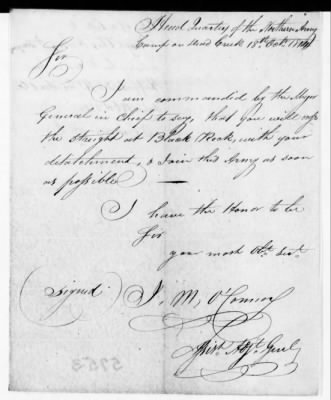 Head Quarters of the Northern Army
Camp on Weed Creek 18th Octr. 1814
Sir
I am commanded by the Major
General in Chief to say, that you will cross
the Straight at Black Rock, with your
detatchment, & Join this Army as soon
as possible
I have the Honor to be
Sir
your most Obt. Servt.
(Signed) J. M. O'Connor
Assist. Adjt. Genl.